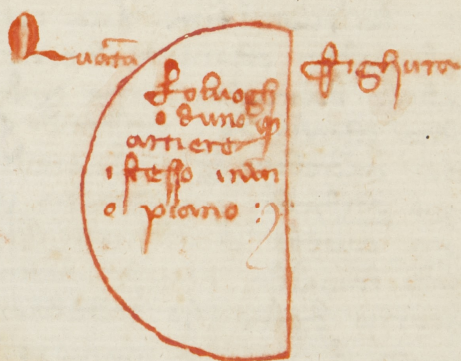 Quarta Fighura
Eoluogh
o duno qu
artiere
istesso inun
o piano :~